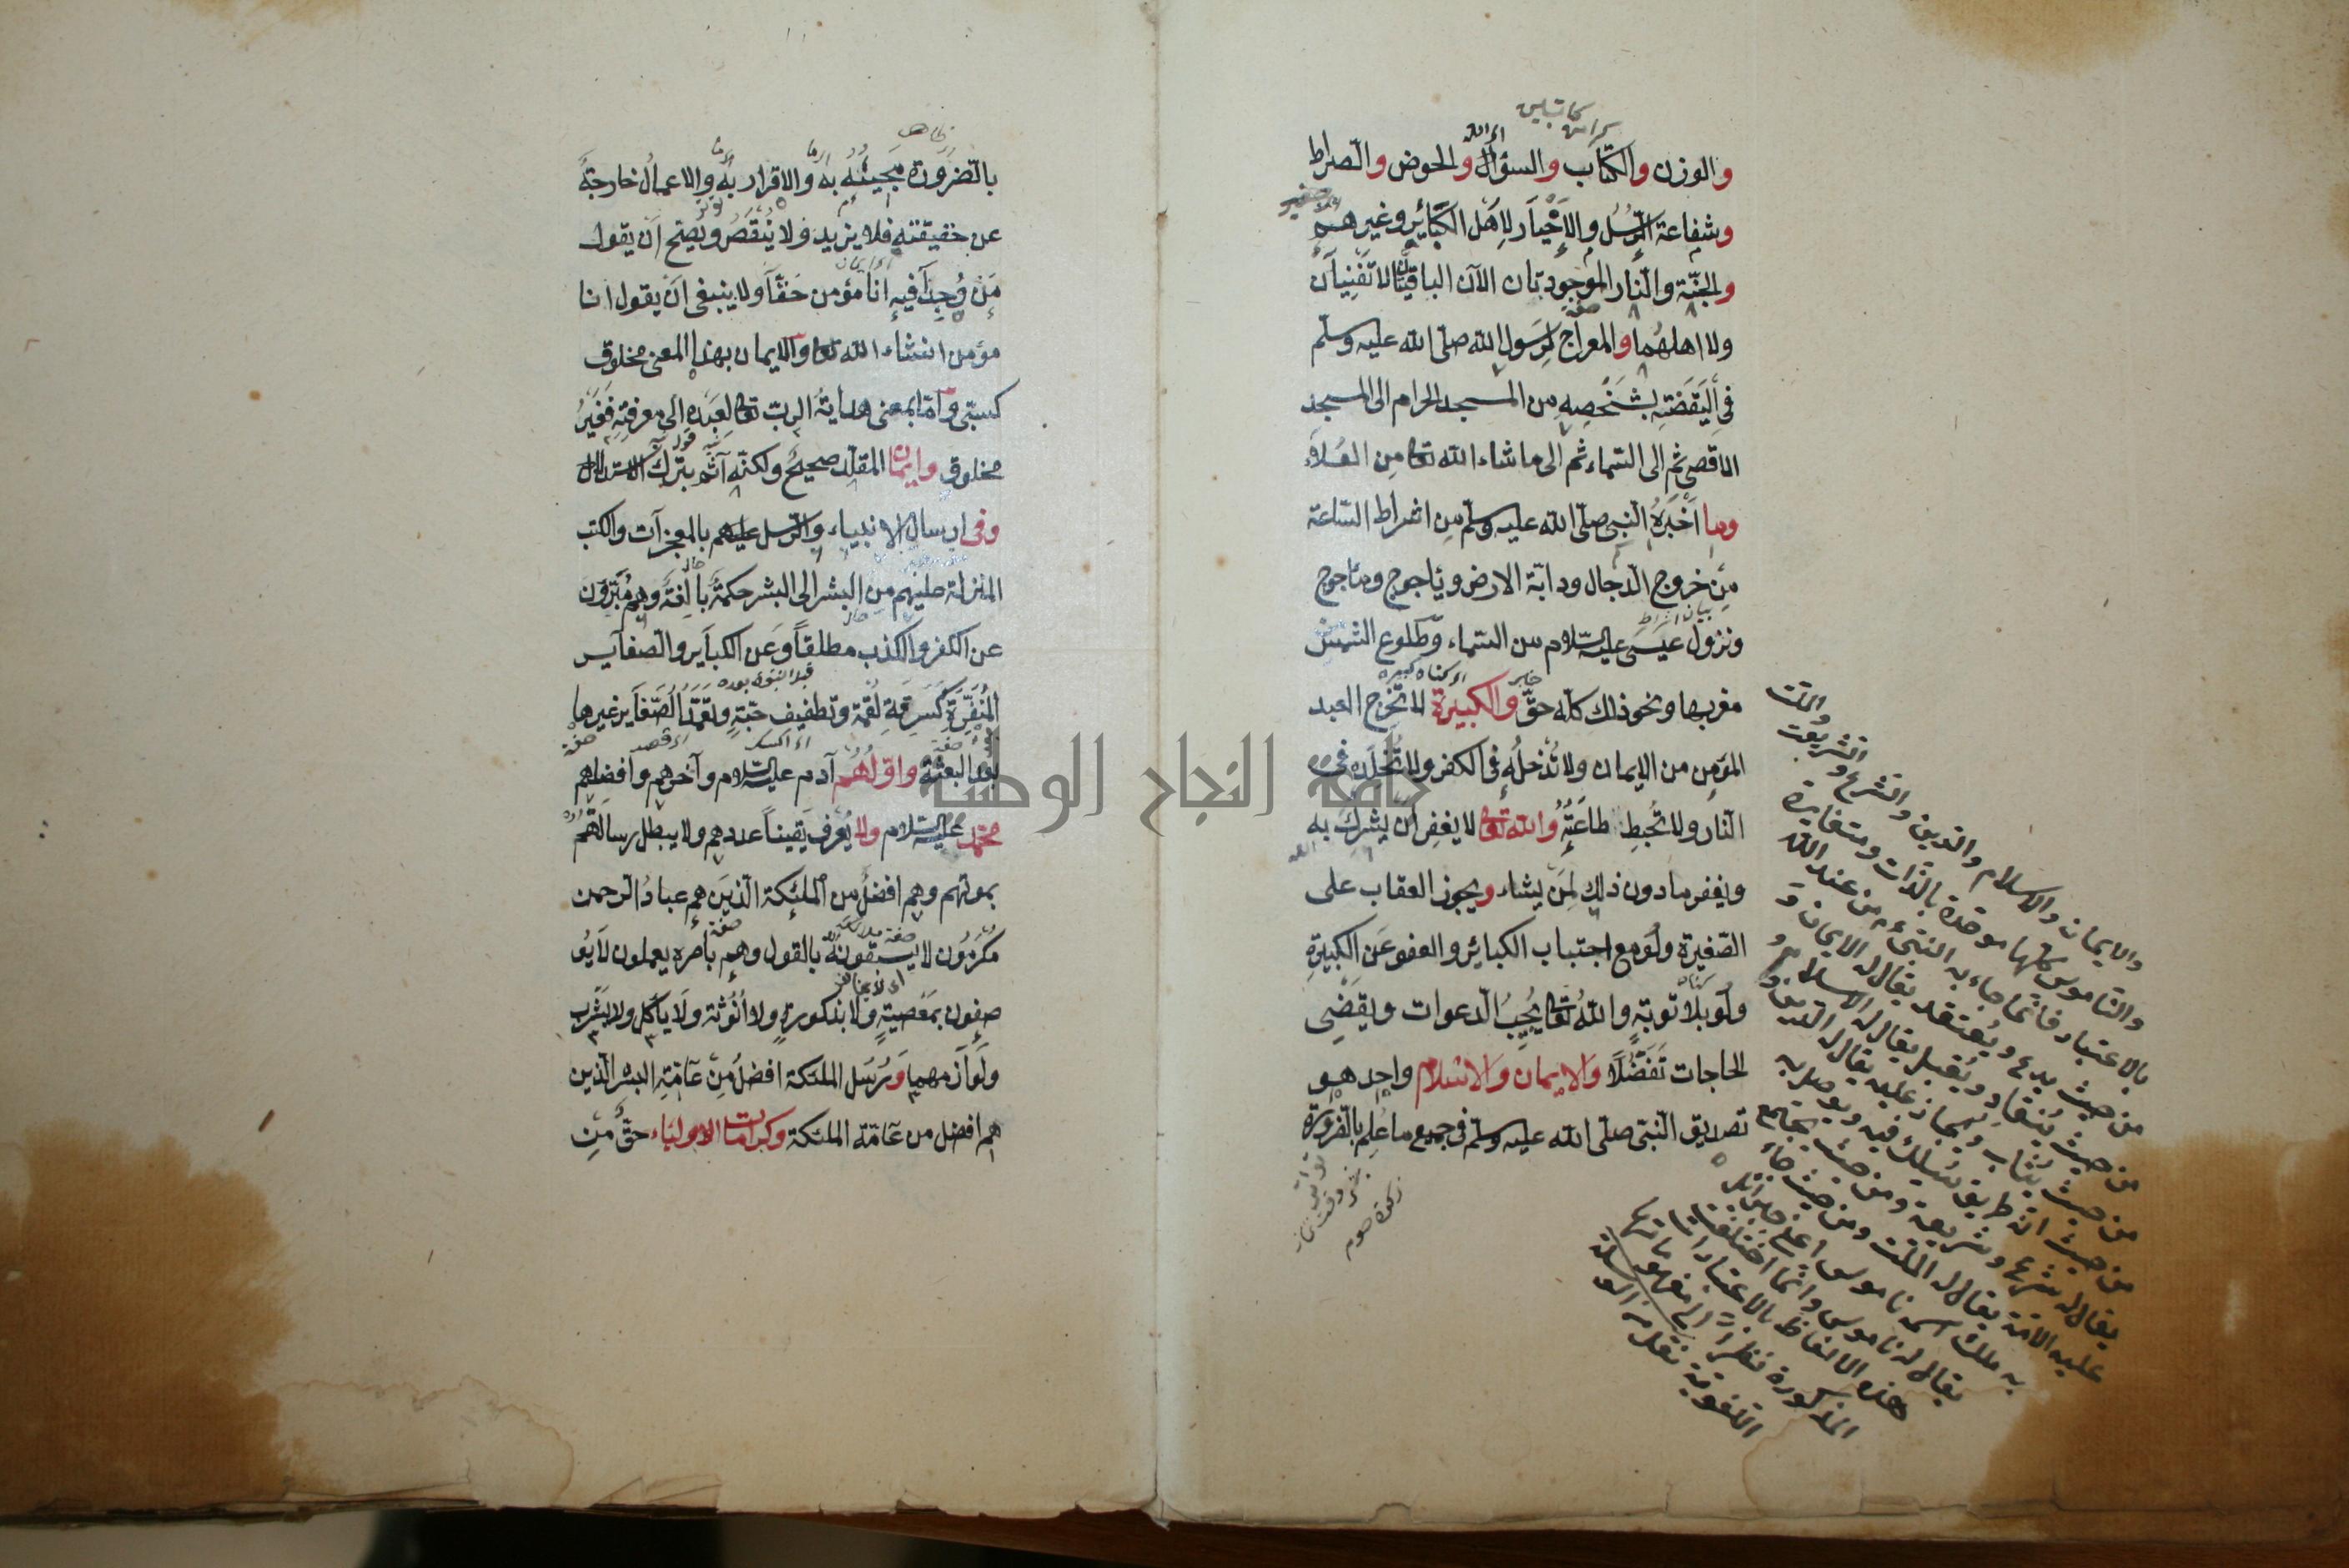 كراما كاتبين
والوزن والكتاب والسؤال والحوض والصراط
وشفاعة الرسل والاخيار لاهل الكبائر وغيرهم
والجنة والنار الموجودتان الآن الباقيتان لا تفنيان
ولا اهلهما والمعراج لرسول الله صلى الله عليه وسلم
في اليقضة بشخصه من المسجد الحرام الى المسجد
الاقصى ثم الى السماء ثم الى ما شاء الله تعالى من العلاء
وما اخبره النبي صلى الله عليه وسلم من اشراط الساعة
من خروج الدجال ودابة الارض وياجوج وماجوج
بيان اشراط
ونزول عيسى عليه السلام من السماء وطلوع الشمس
مغربها ونحو ذلك كله حق والكبيرة لا تخرج العبد
المؤمن من الايمان ولا تدخله في الكفر ولا تخلده في
النار ولا تحبط طاعته والله تعالى لا يغفر ان يشرك به
ويغفر ما دون ذلك لمن يشاء ويجوز العقاب على
الصغيرة ولو مع اجتناب الكبائر والعفو عن الكبيرة
ولو بلا توبة والله تعالى يجيب الدعوات ويقضي
الحاجات تفضلا والايمان والاسلام واحد هو
تصديق النبي صلى الله عليه وسلم في جميع ما علم بالضرورة
والايمان والاسلام والدين والشرع والشريعت والملت
والناموس كلها موحدة بالذات ومتغايرة
بالاعتبار فانما جاء به النبي من عند الله
من حيث يدع ويعتقد يقال له الايمان و
من حيث ينقاد ويقبل يقال له الاسلام و
من حيث يثاب ويجاز عليه يقال له الدين و
من حيث انه طريق يسلك فيه ويوصل به
يقال له شرع وشريعة ومن حيث يجتمع
عليه الامة يقال له الملت ومن حيث جاء
به ملك اسمه ناموس اعني جبرائيل
يقال له ناموس وانما اختلفت
هذه الالفاظ بالاعتبارات
المذكورة نظرا الى مفهوماتها
اللغوية نقل من الوسيلة
بالضرورة مجيئه به والاقرار به والاعمال خارجة
عن حقيقته فلا يزيد ولا ينقص ويصح ان يقول
من وجدا فيه انا مؤمن حقا ولا ينبغي ان يقول انا
مؤمن انشاء الله تعالى والايمان بهذا المعنى مخلوق
كسبي واما بمعنى هداية الرب تعالى لعبده الى معرفته فغير
مخلوق وايمان المقلد صحيح ولكنه آثم بترك الاستدلال
وفي ارسال الانبياء والرسل عليهم بالمعجزات والكتب
المنزلة عليهم من البشر الى البشر حكمة بالغة وهم مبرؤن
عن الكفر والكذب مطلقا وعن الكبائر والصغائر
المنفرة كسرقة لقمة وتطفيف حبة وتعمد الصغاير غيرها
بعد البعثة واولهم آدم عليه السلام وآخرهم وافضلهم
محمد عليه السلام ولا يعرف يقينا عددهم ولا يبطل رسالتهم
بموتهم وهم افضل من الملئكة الذين هم عباد الرحمن
مكرمون لا يسبقونه بالقول وهم بامره يعملون لا يو
صفون بمعصية ولا بذكورة ولا انوثة ولا ياكل ولا يشرب
ولوازمهما ورسل الملئكة افضل من عامة البشر الذين
هم افضل من عامة الملئكة وكرامات الاولياء حق من
جامعة النجاح الوطنية